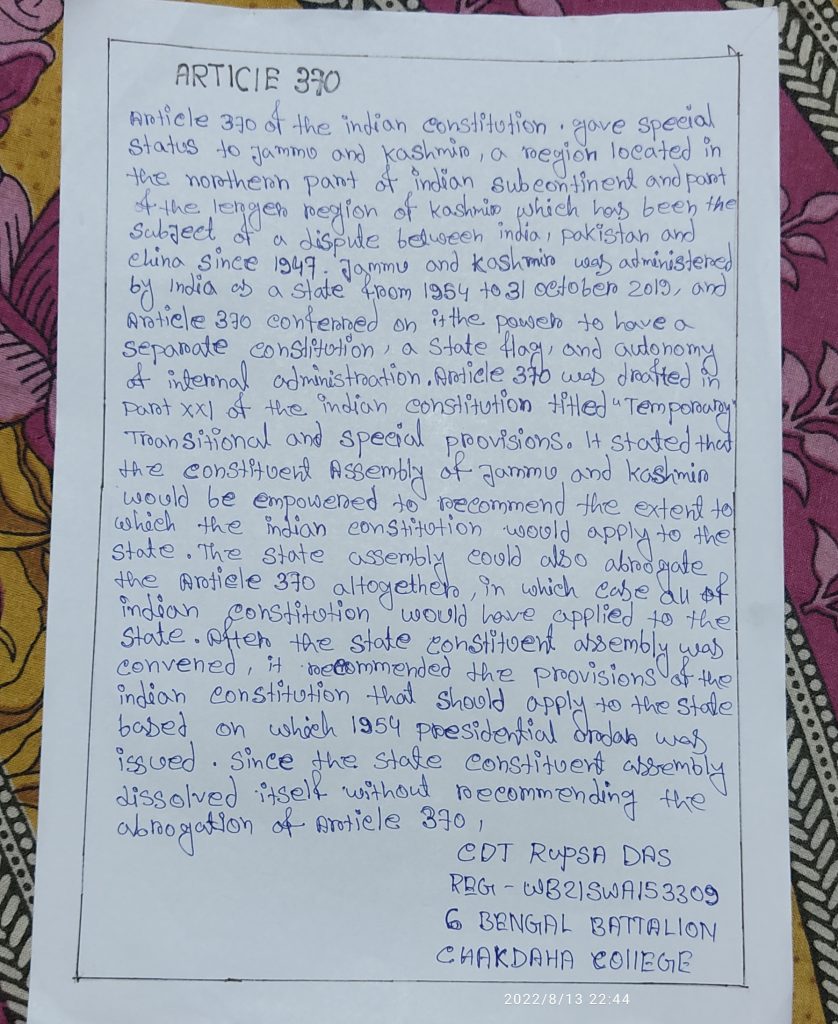 ARTICIE 370
Article 370 of the indian constitution. gave special
status to Jammu and Kashmir, a region located in
the northern part of indian subcontinent and part
of the lerger region of Kashmir which has been the
subject of a dispute between india, pakistan and
china since 1947. Jammu and Kashmir was administered
by India as a state from 1954 to 31 october 2019, and
Article 370 conferred on it the power to have a
separate constitution, a state flag, and autonomy
of internal administration. Article 370 was drafted in
Part XXI of the indian constitution titled "Temporary"
Transitional and special provisions. It stated that
the constituent Assembly of Jammu and Kashmir
would be empowered to recommend the extent to
which the indian constitution would apply to the
state. The state assembly could also abrogate
the Article 370 altogether, in which case all of
indian constitution would have applied to the
state. After the state constituent assembly was
convened, it recommended the provisions of the
indian constitution that should apply to the state
based on which 1954 presidential order was
issued. Since the state constituent assembly
dissolved itself without recommending the
abrogation of Article 370,
CDT RUPSA DAS
REG - WB21SWA153309
6 BENGAL BATTALION
CHAKDAHA COllEGE
2022/8/13 22:44